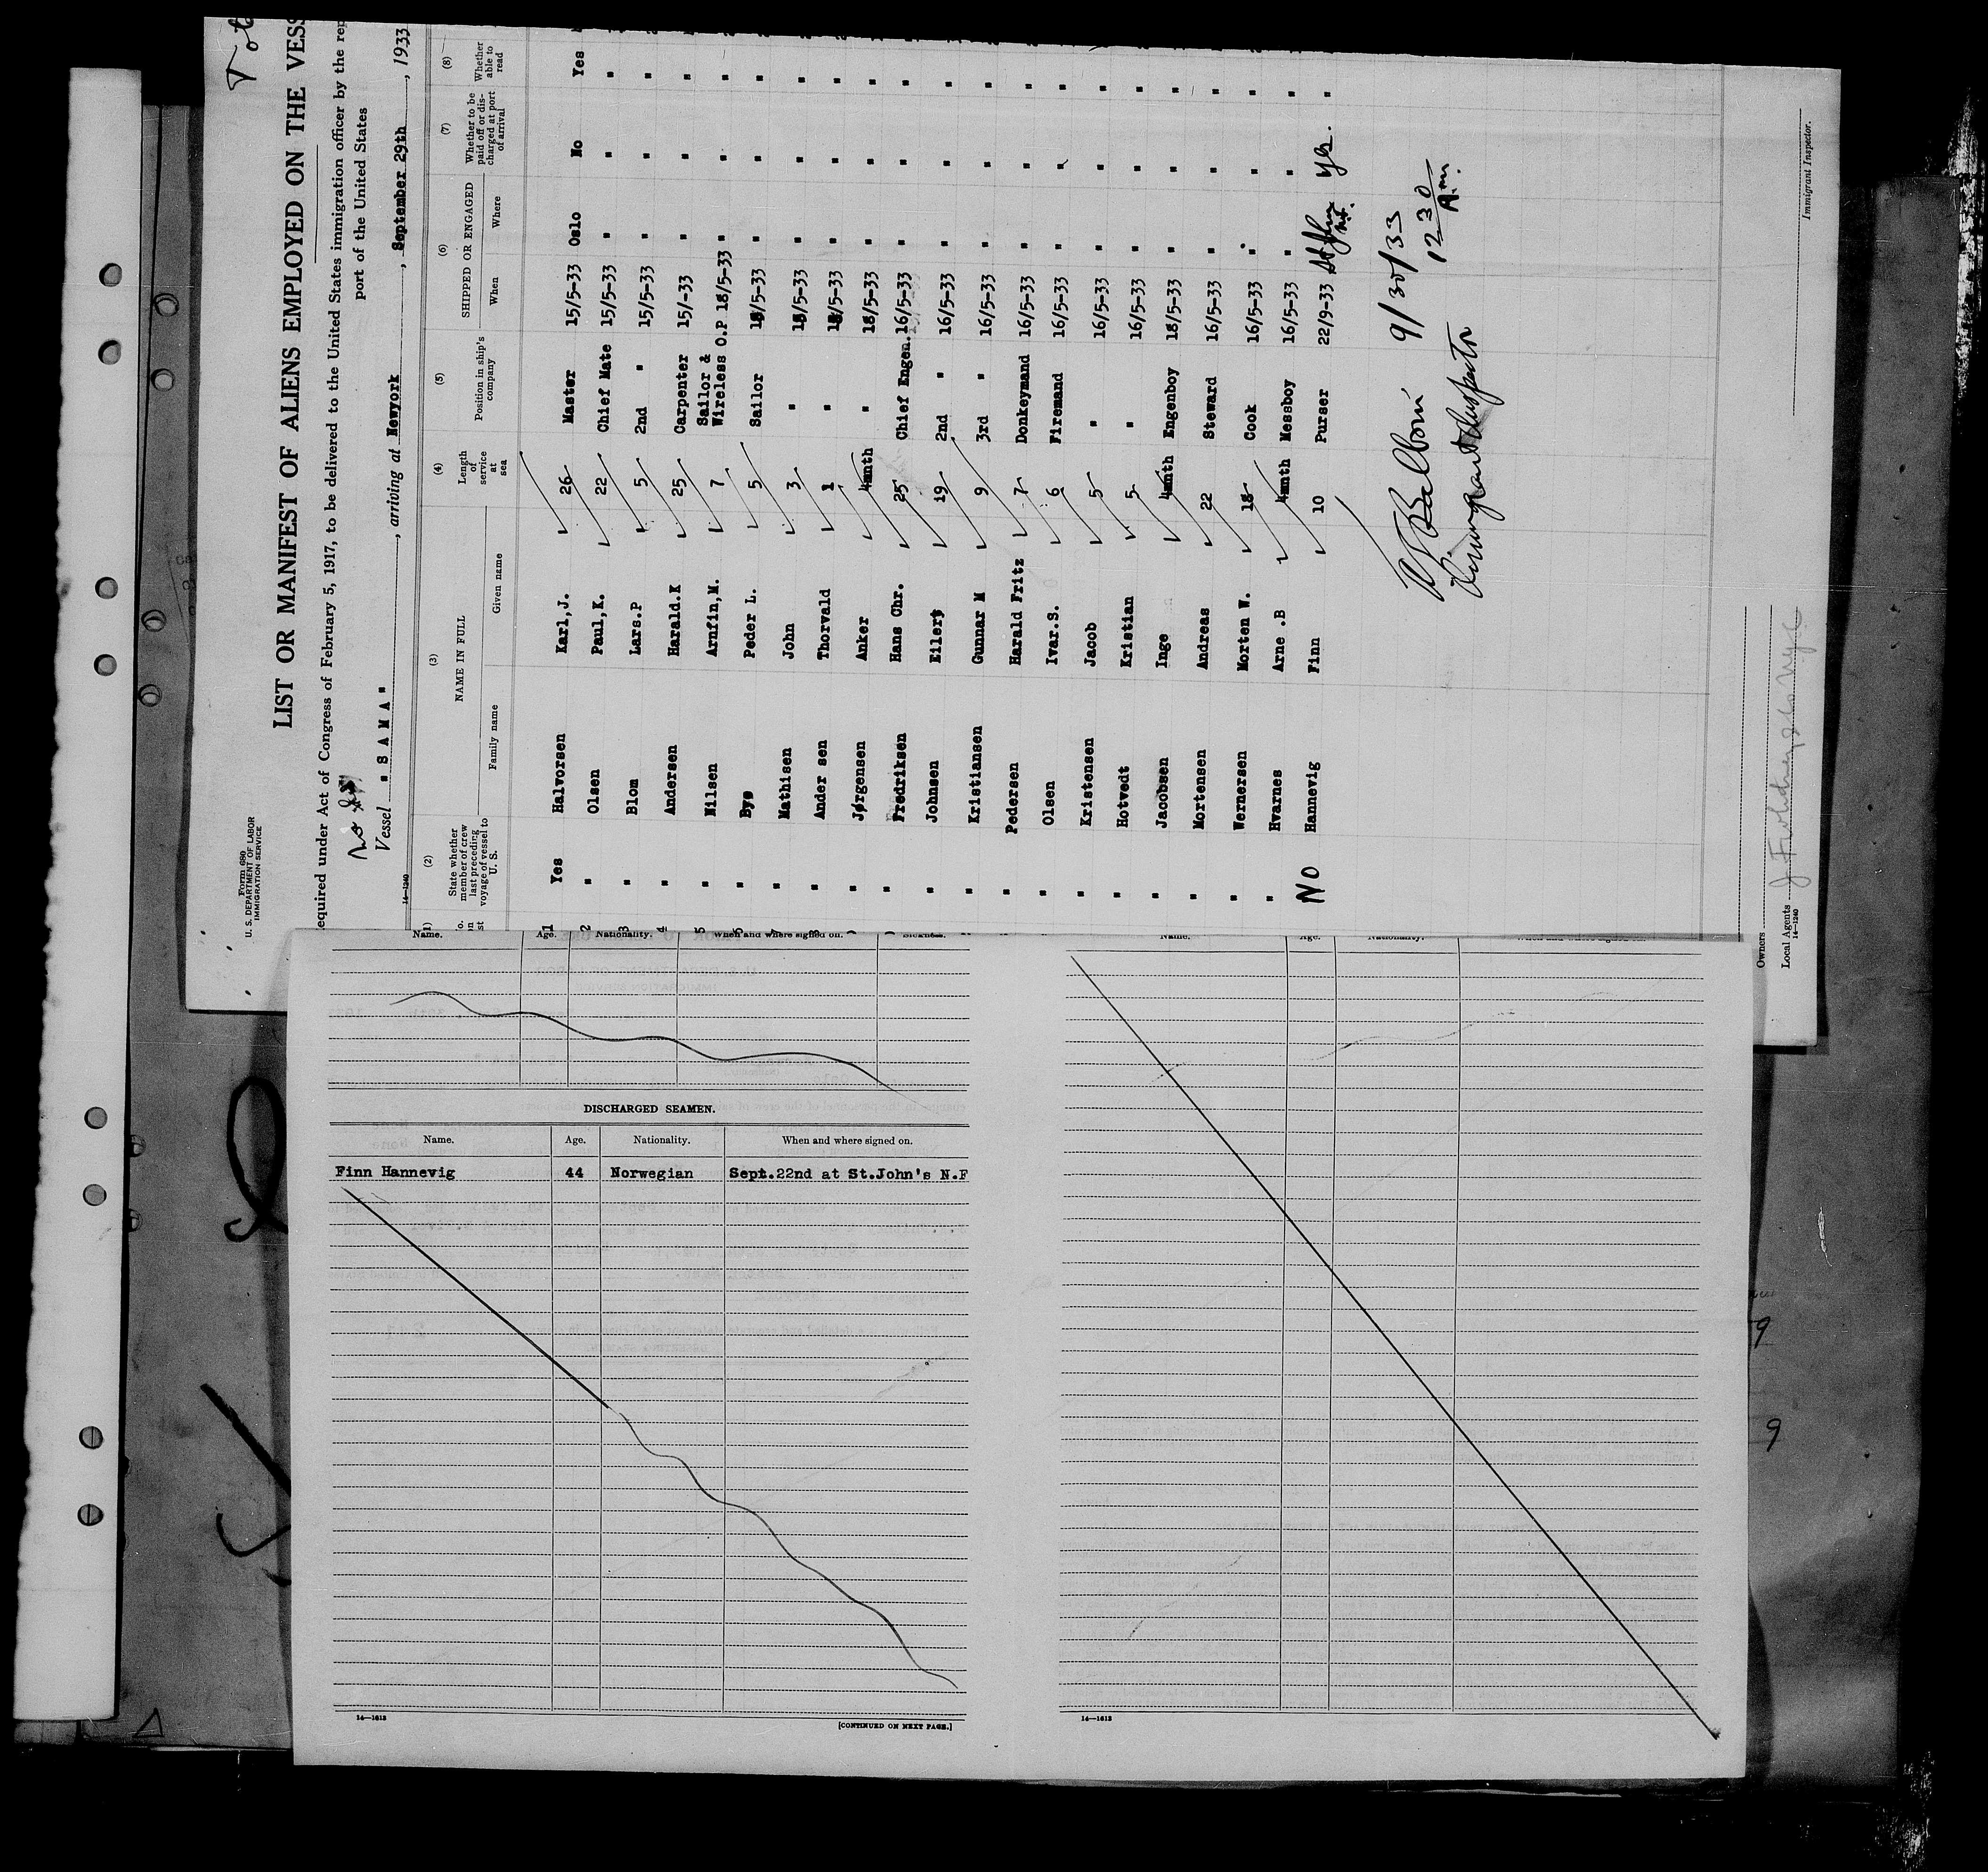 Form 680
U. S. DEPARTMENT OF LABOR
IMMIGRATION SERVICE
LIST OR MANIFEST OF ALIENS EMPLOYED ON THE VESS
equired under Act of Congress of February 5, 1917, to be delivered to the United States immigration officer by the rep
port of the United States
Vessel "SAMA", arriving at Newyork, September 29th, 1933
14—1240
(2) (3) (4) (5) (6) (7) (8)
State whether member of crew last preceding voyage of vessel to U. S. NAME IN FULL Family name Given name Length of service at sea Position in ship's company SHIPPED OR ENGAGED When Where Whether to be paid off or discharged at port of arrival Whether able to read
1 Yes Halvorsen Karl,J. 26 Master 15/5-33 Oslo No Yes
2 " Olsen Paul,K. 22 Chief Mate 15/5-33 " " "
3 " Blom Lars.P 5 2nd " 15/5-33 " " "
4 " Andersen Harald.K 25 Carpenter 15/-33 " " "
5 " Nilsen Arnfin,M. 7 Sailor & Wireless O.P 18/5-33 " " "
6 " Bye Peder L. 5 Sailor 18/5-33 " " "
7 " Mathisen John 3 " 18/5-33 " " "
8 " Ander sen Thorvald 1 " 18/5-33 " " "
" Jørgensen Anker 4mnth " 18/5-33 " " "
" Fredriksen Hans Chr. 25 Chief Engen. 16/5-33 " " "
" Johnsen Eilert 19 2nd " 16/5-33 " " "
" Kristiansen Gunnar M 9 3rd " 16/5-33 " " "
" Pedersen Harald Fritz 7 Donkeymand 16/5-33 " " "
" Olsen Ivar.S. 6 Firemand 16/5-33 " " "
" Kristensen Jacob 5 " 16/5-33 " " "
" Hotvedt Kristian 5 " 16/5-33 " " "
" Jacobsen Inge 4mnth Engenboy 18/5-33 " " "
" Mortensen Andreas 22 Steward 16/5-33 " " "
" Wernersen Morten W. 18 Cook 16/5-33 " " "
" Hvarnes Arne .B 4mnth Messboy 16/5-33 " " "
NO Hannevig Finn 10 Purser 22/9-33 St John N.F. yes. "
9/30/33
12 30 A.m.
Immigrant Inspector
Immigrant Inspector.
Owners
Local Agents
14—1240
Name. Age. Nationality. When and where signed on.
Name. Age. Nationality.
DISCHARGED SEAMEN.
Name. Age. Nationality. When and where signed on.
Finn Hannevig 44 Norwegian Sept.22nd at St.John's N.F
14—1613
[CONTINUED ON NEXT PAGE.]
14—1613
9
9